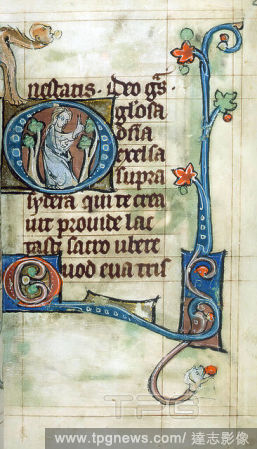 nestatis. Deo grās.
O gloſa
dn̄a
excelſa
ſupra
ſydera qui te crea
uit prouide lac
taſti ſacro ubere
Quod eua triſ
TPG
www.tpgnews.com/ 達志影像